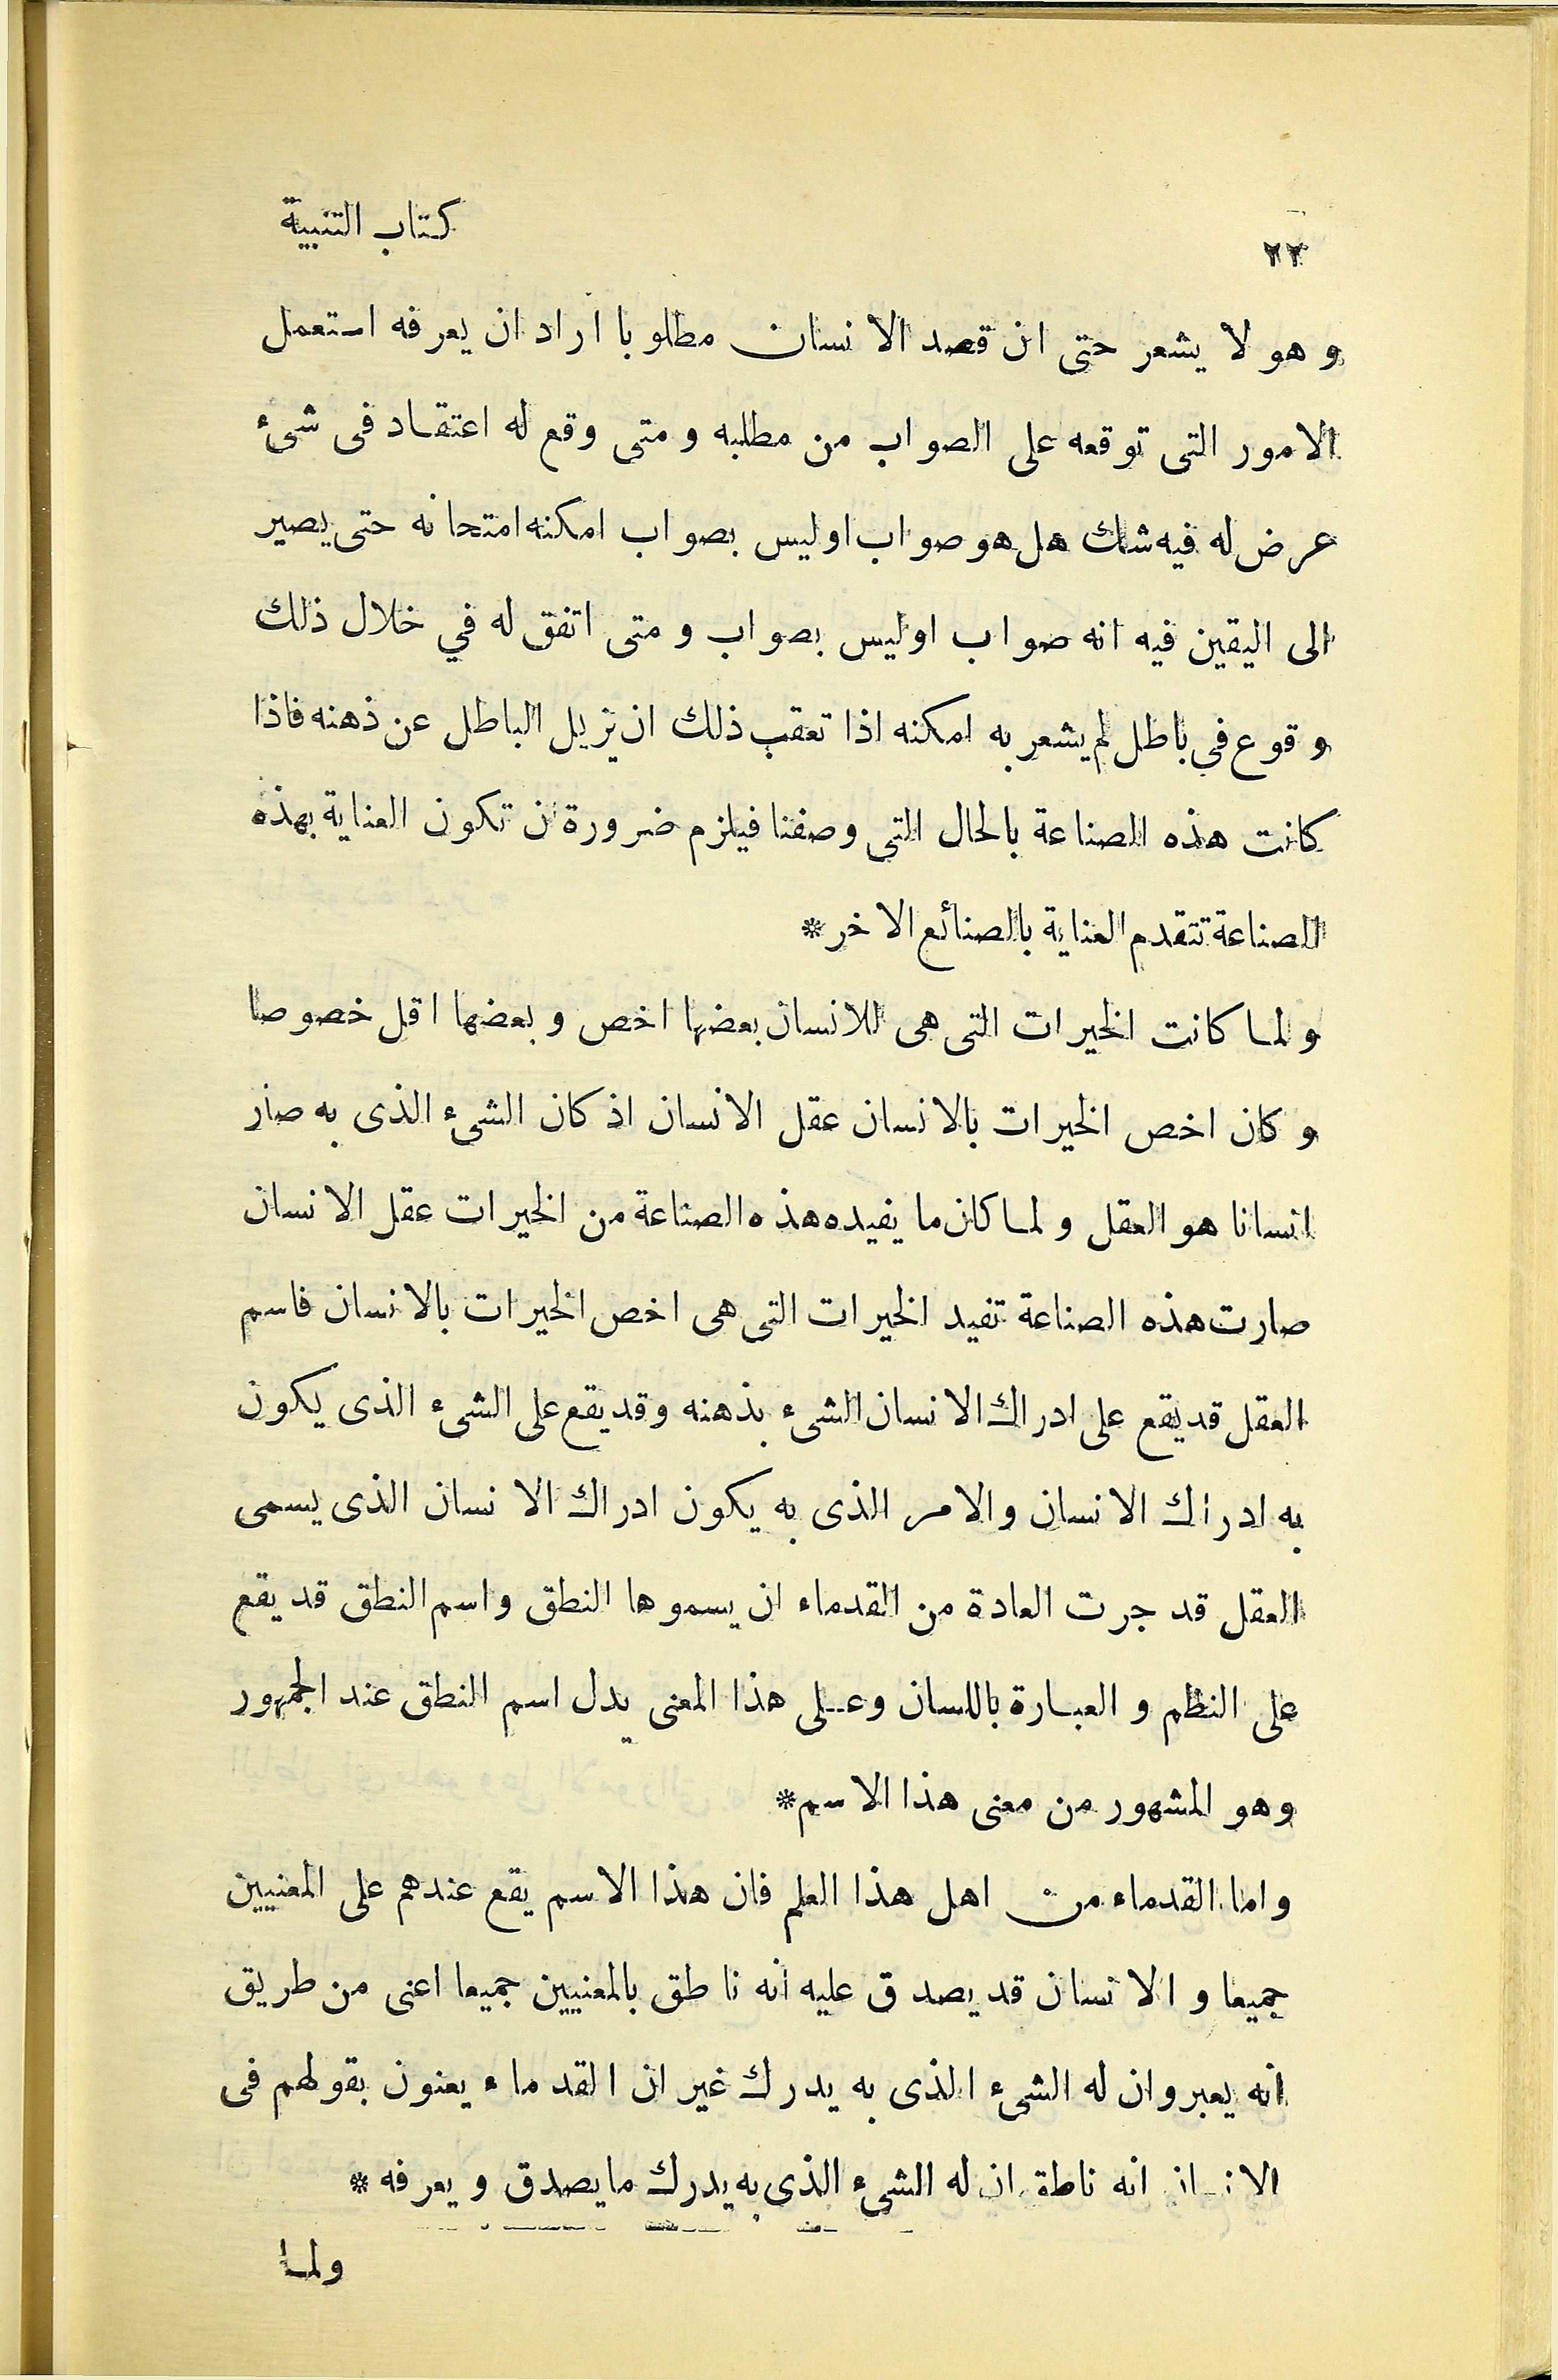 ٢٢
كتاب التنبية
وهو لا يشعر حتى ان قصد الانسان مطلوبا اراد ان يعرفه استعمل
الامور التى توقعه على الصواب من مطلبه ومتى وقع له اعتقاد فى شىء
عرض له فيه شك هل هو صواب اوليس بصواب امكنه امتحانه حتى يصير
الى اليقين فيه انه صواب اوليس بصواب ومتى اتفق له في خلال ذلك
وقوع فى باطل لم يشعر به امكنه اذا تعقب ذلك ان يزيل الباطل عن ذهنه فاذا
كانت هذه الصناعة بالحال التى وصفنا فيلزم ضرورة ن تكون العناية بهذه
الصناعة تتقدم العناية بالصنائع الاخر*
ولما كانت الخيرات التى هى للانسان بعضها اخص وبعضها اقل خصوصا
وكان اخص الخيرات بالانسان عقل الانسان اذ كان الشىء الذى به صار
انسانا هو العقل ولما كان ما يفيده هذه الصناعة من الخيرات عقل الانسان
صارت هذه الصناعة تفيد الخيرات التى هى اخص الخيرات بالانسان فاسم
العقل قد يقع على ادراك الانسان الشىء بذهنه وقد يقع على الشىء الذى يكون
به ادراك الانسان والامر الذى به يكون ادراك الانسان الذى يسمى
العقل قد جرت العادة من القدماء ان يسموها النطق واسم النطق قد يقع
على النظم والعبارة باللسان وعلى هذا المعنى يدل اسم النطق عند الجمهور
وهو المشهور من معنى هذا الاسم*
واما القدماء من اهل هذا العلم فان هذا الاسم يقع عندهم على المعنيين
جميعا والانسان قد يصدق عليه انه ناطق بالمعنيين جميعا اعنى من طريق
انه يعبر وان له الشىء الذى به يدرك غير ان القدماء يعنون بقولهم فى
الانسان انه ناطق ان له الشىء الذى به يدرك ما يصدق ويعرفه*
ولما